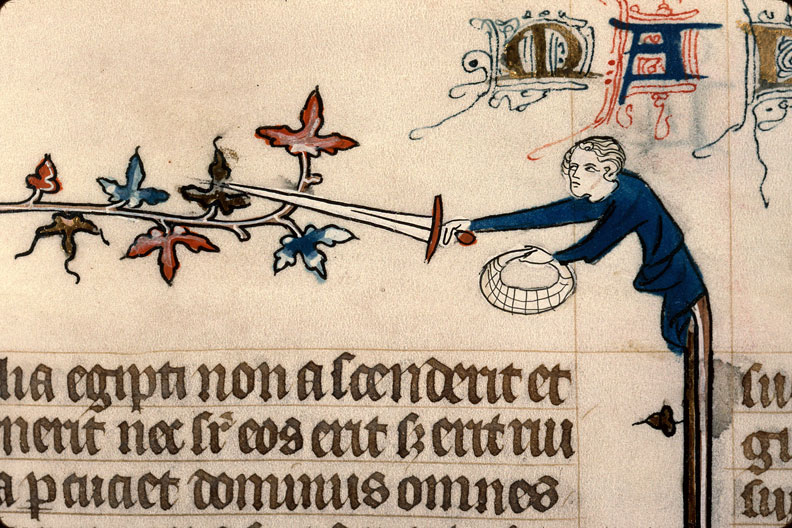 M A
lia egipti non ascenderit et su
nerit nec sr̄ eos erit sꝫ erit rui gi
a ꝑcuciet dominus omnes su